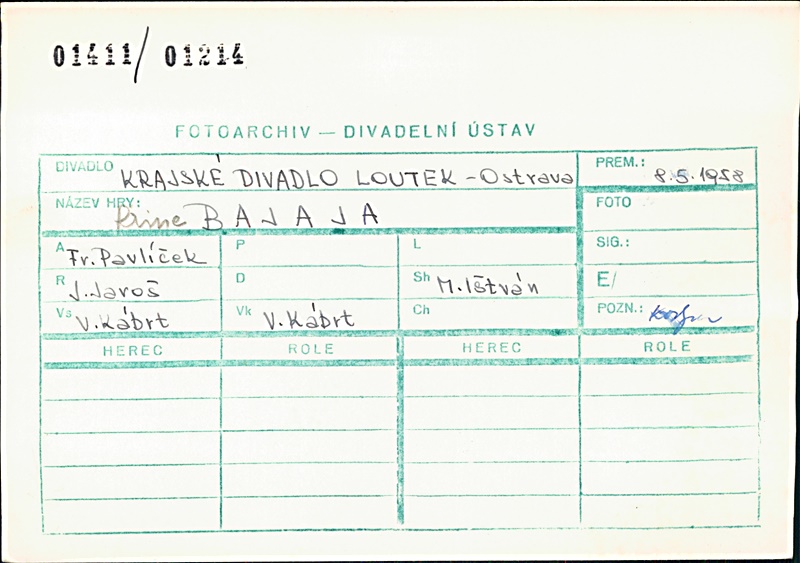 01411/ 01214
FOTOARCHIV — DIVADELNÍ ÚSTAV
DIVADLO KRAJSKÉ DIVADLO LOUTEK - Ostrava
PREM.: 8.5.1958
NÁZEV HRY: Princ BAJAJA
FOTO
A Fr. Pavlíček
P
L
SIG.:
R J. Jaroš
D
Sh M. Ištván
E/
Vs V. Kábrt
Vk V. Kábrt
Ch
POZN.:
HEREC ROLE HEREC ROLE